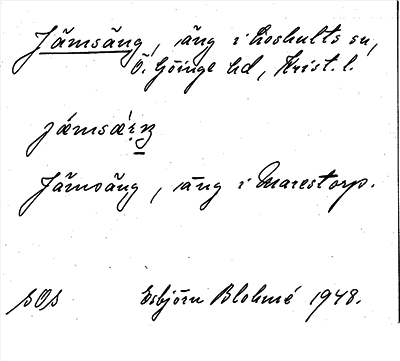 Jämsäng, äng i Loshults sn,
Ö. Göinge hd, Krist. l.
Jämsäng, äng i Marestorp.
sOs Esbjörn Blohmé 1948.